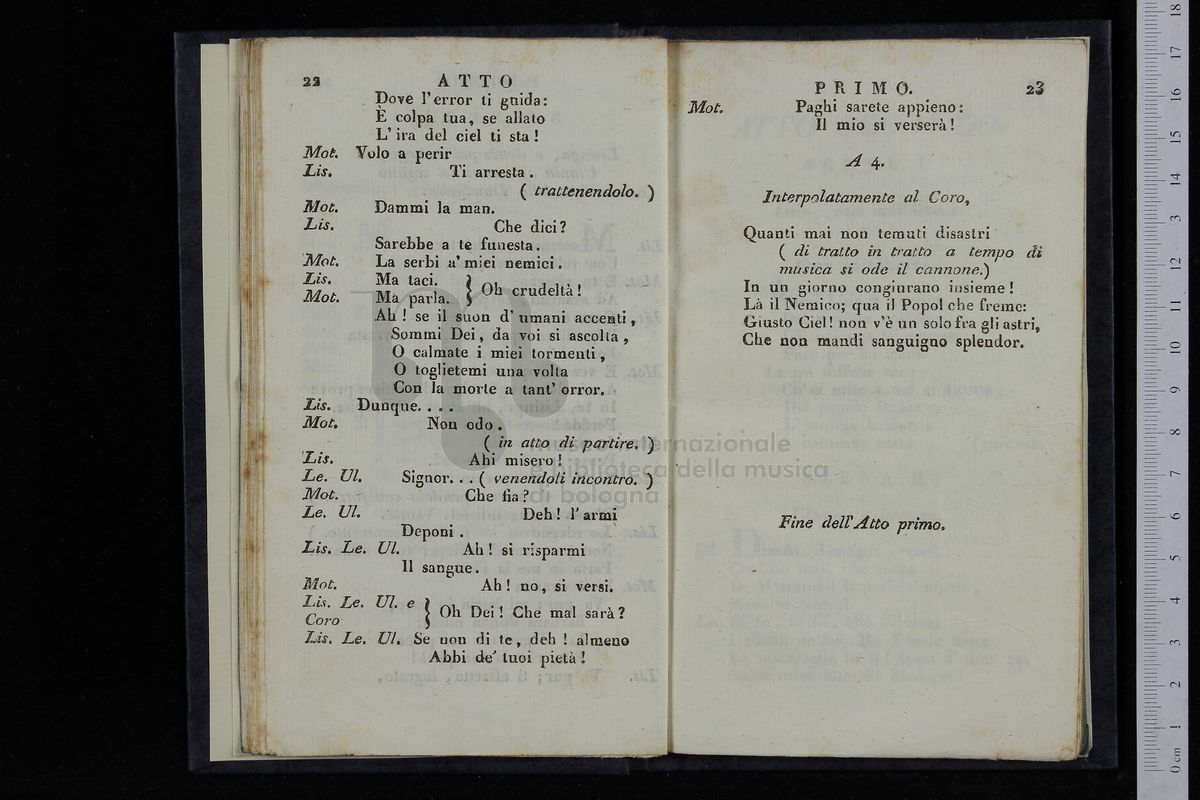 22 ATTO
Dove l'error ti guida:
È colpa tua, se allato
L' ira del ciel ti sta!
Mot. Volo a perir
Lis. Ti arresta.
( trattenendolo. )
Mot. Dammi la man.
Lis. Che dici?
Sarebbe a te funesta.
Mot. La serbi a' miei nemici.
Lis. Ma taci. } Oh crudeltà!
Mot. Ma parla.
Ah! se il suon d' umani accenti,
Sommi Dei, da voi si ascolta,
O calmate i miei tormenti,
O toglietemi una volta
Con la morte a tant' orror.
Lis. Dunque. . . .
Mot. Non odo.
( in atto di partire. )
Lis. Ahi misero!
Le. Ul. Signor. . . ( venendoli incontro. )
Mot. Che fia?
Le. Ul. Deh! l' armi
Deponi.
Lis. Le. Ul. Ah! si risparmi
Il sangue.
Mot. Ah! no, si versi.
Lis. Le. Ul. e } Oh Dei! Che mal sarà?
Coro
Lis. Le. Ul. Se non di te, deh! almeno
Abbi de' tuoi pietà!
PRIMO. 23
Mot. Paghi sarete appieno:
Il mio si verserà!
A 4.
Interpolatamente al Coro,
Quanti mai non temuti disastri
( di tratto in tratto a tempo di
musica si ode il cannone.)
In un giorno congiurano insieme!
Là il Nemico; qua il Popol che freme:
Giusto Ciel! non v'è un solo fra gli astri,
Che non mandi sanguigno splendor.
Fine dell'Atto primo.
museo internazionale
e biblioteca della musica
di bologna
0 cm 1 2 3 4 5 6 7 8 9 10 11 12 13 14 15 16 17 18